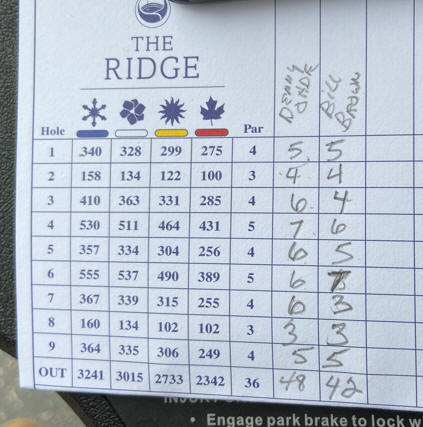 THE
RIDGE
Hole Par DENNY JADE BILL BROWN
1 340 328 299 275 4 5 5
2 158 134 122 100 3 4 4
3 410 363 331 285 4 6 4
4 530 511 464 431 5 7 6
5 357 334 304 256 4 6 5
6 555 537 490 389 5 6
7 367 339 315 255 4 6 3
8 160 134 102 102 3 3 3
9 364 335 306 249 4 5 5
OUT 3241 3015 2733 2342 36 48 42
• Engage park brake to lock